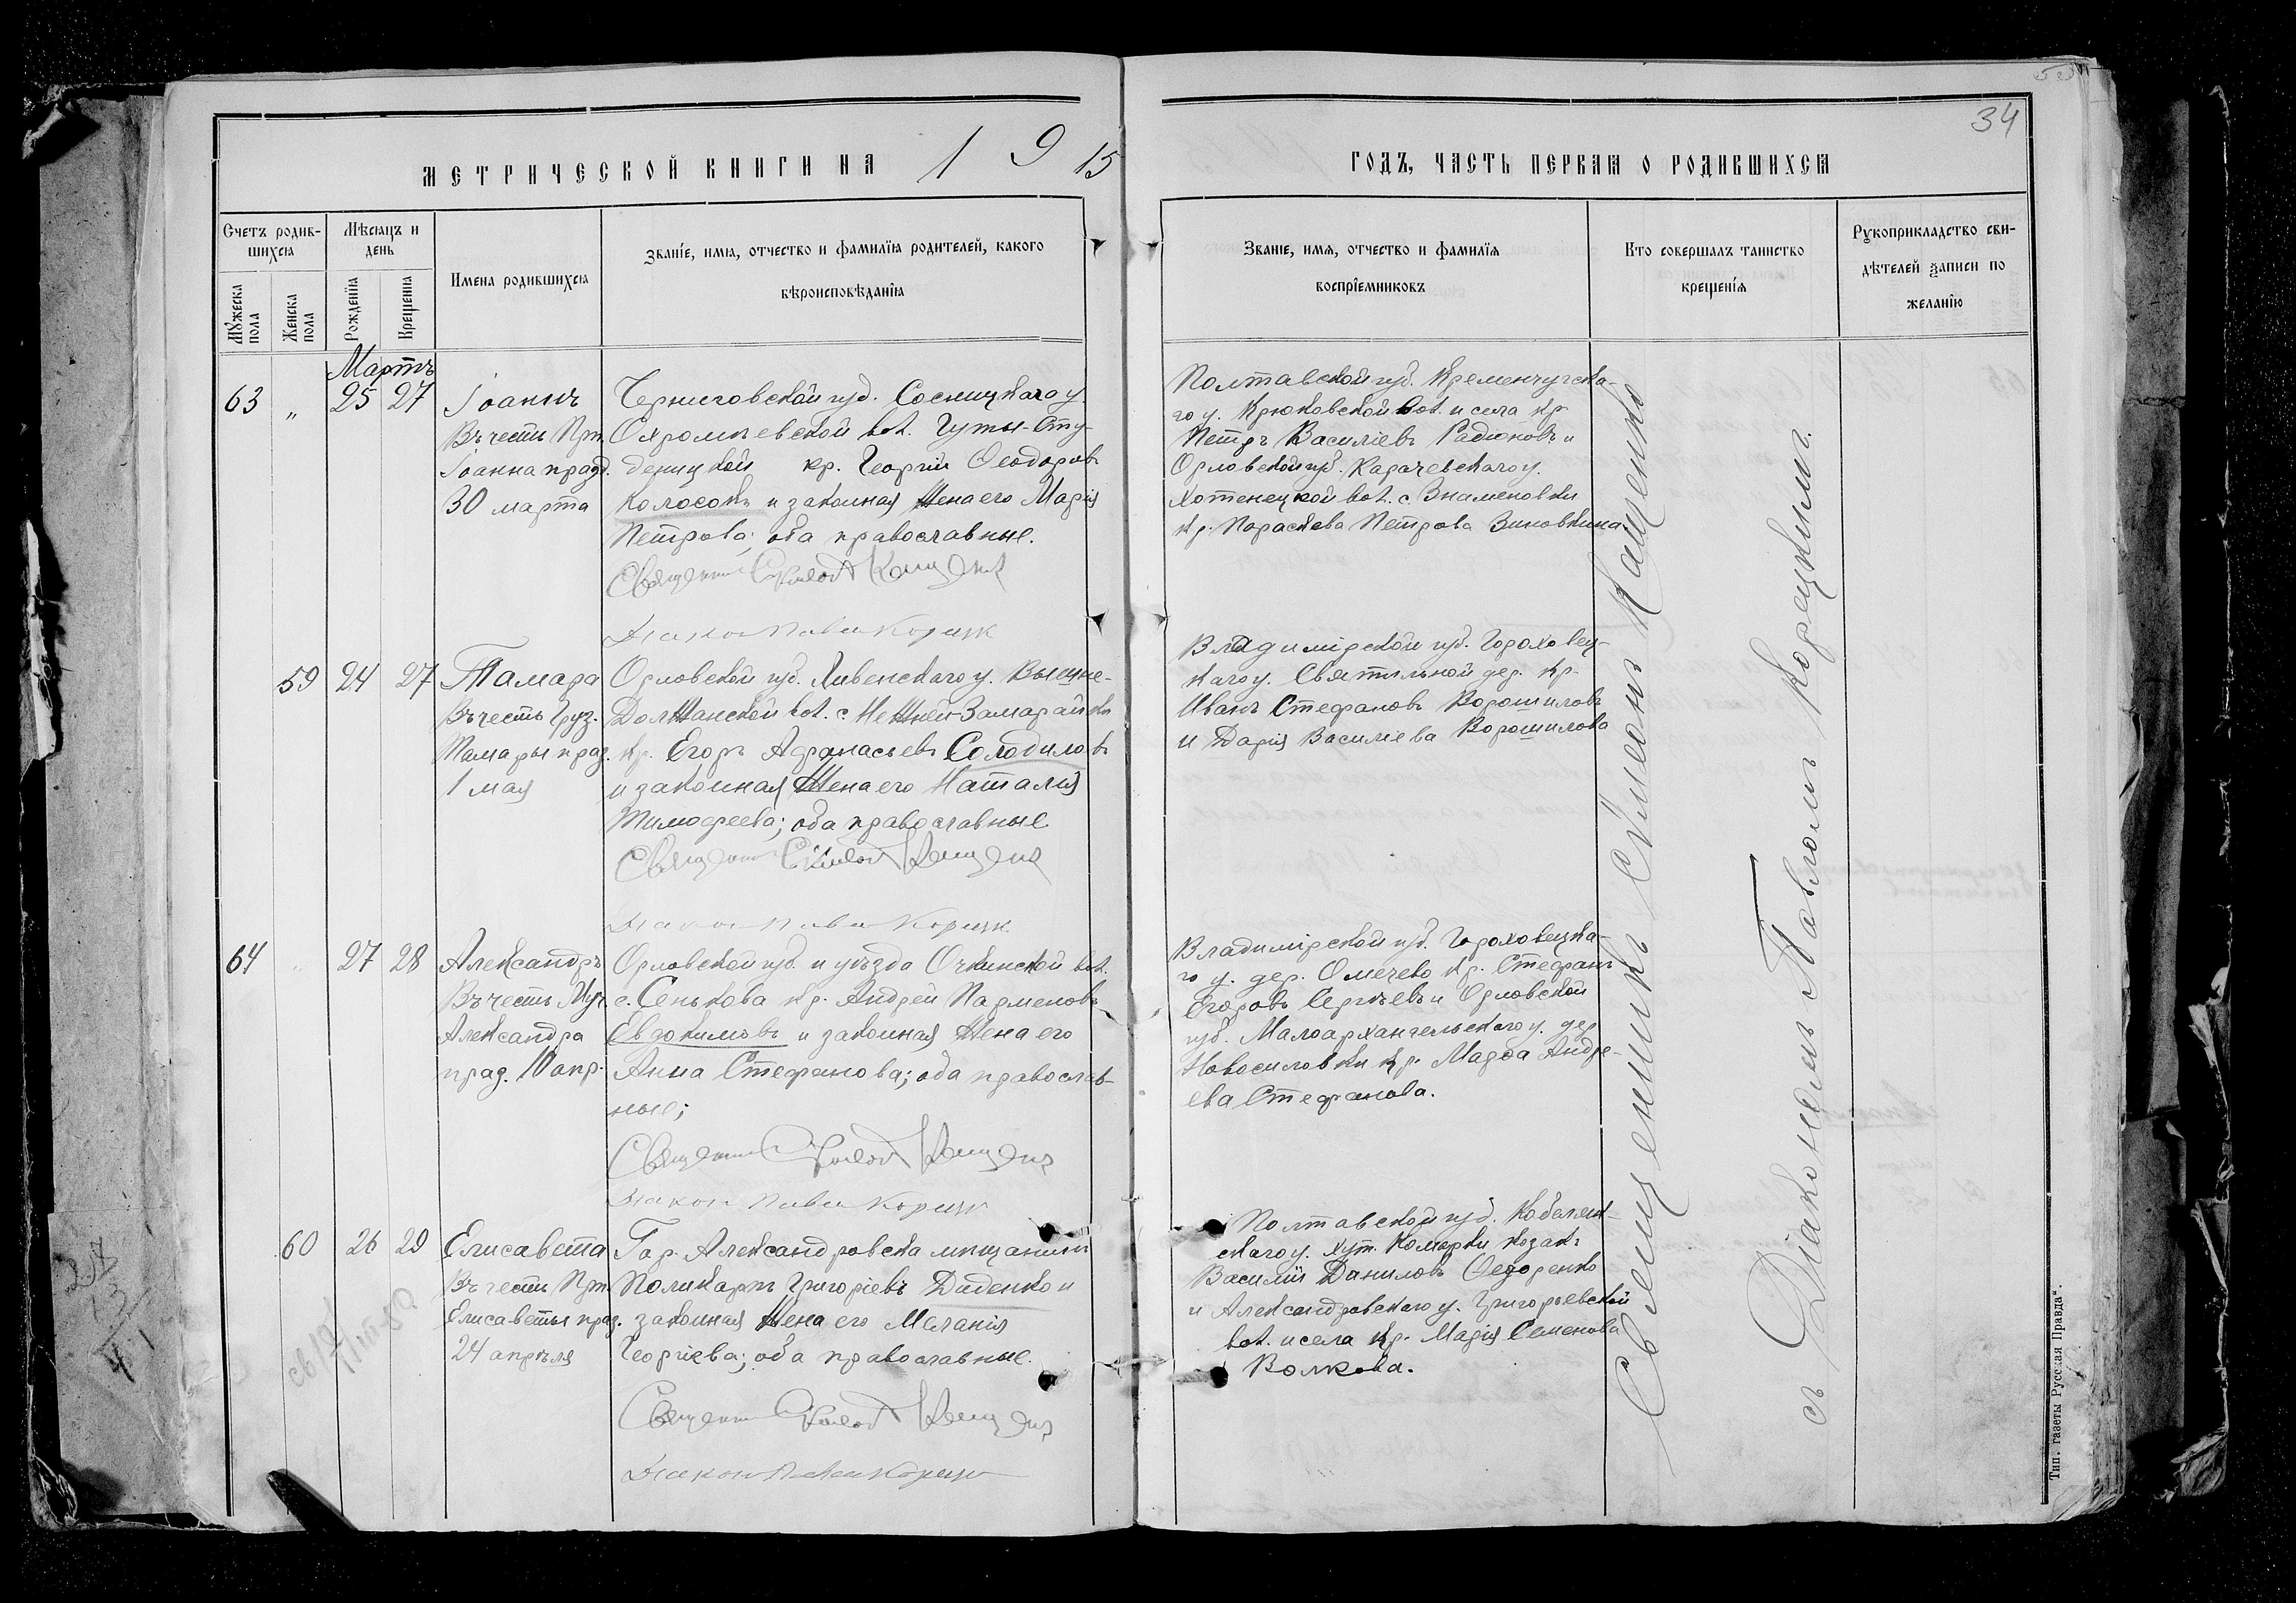 34
МЕТРИЧЕСКОЙ КНИГИ НА 1915
ГОДЪ, ЧАСТЬ ПЕРВАЯ О РОДИВШИХСЯ
Счетъ родив-
шихся
Мѣсяцъ и
день
Мужеска
пола
Женска
пола
Рожденія
Крещенія
Имена родившихся
Званіе, имя, отчество и фамилія родителей, какого
вѣроисповѣданія
Званіе, имя, отчество и фамилія
воспріемниковъ
Кто совершалъ таинство
крещенія
Рукоприкладство сви-
дѣтелей записи по
желанію
Мартъ
63 " 25 27
Іоаннъ
Въ честь Прп.
Іоанна празд.
30 марта
Черниговской губ. Сосницкаго у.
Охромѣевской вол. Гуты-Сту-
деницкой кр. Георгій Ѳеодоровъ
Колосокъ и законная жена его Марія
Петрова; оба православные.
Священникъ Симеонъ Кащенко
Діаконъ Павелъ Корецкій
Полтавской губ. Кременчугска-
го у. Крюковской вол. и села кр.
Петръ Василіевъ Радіоновъ и
Орловской губ. Карачевскаго у.
Хотенецкой вол. с. Знаменовки
кр. Параскева Петрова Зиновкина.
59 24 27
Тамара
Въ честь Груз.
Тамары праз.
1 мая
Орловской губ. Ливенскаго у. Вышне-
Должанской вол. с. Нежней-Замарайки
кр. Егоръ Афанасьевъ Солодиловъ
и законная жена его Наталія
Тимофеева; оба православные
Священникъ Симеонъ Кащенко
Діаконъ Павелъ Корецкій
Владимірской губ. Гороховец-
каго у. Святильной дер. кр.
Иванъ Стефановъ Ворошиловъ
и Дарія Василіева Ворошилова
64 " 27 28
Александръ
Въ честь Муч.
Александра
праз. 10 апр.
Орловской губ. и уѣзда Очкинской вол.
с. Сенькова кр. Андрей Парменовъ
Евдокимовъ и законная жена его
Анна Стефанова; оба православ-
ные;
Священникъ Симеонъ Кащенко
Діаконъ Павелъ Корецкій
Владимірской губ. Гороховецка-
го у. дер. Омечево кр. Стефанъ
Егоровъ Сергѣевъ и Орловской
губ. Малоархангельскаго у. дер.
Новосиловки кр. Марфа Андре-
ева Стефанова.
60 26 29
Елисавета
Въ честь Прп.
Елисаветы праз.
24 апрѣля
Гор. Александровска мѣщанинъ
Поликарпъ Григоріевъ Диденко и
законная жена его Меланія
Георгіева; оба православные.
Священникъ Симеонъ Кащенко
Діаконъ Павелъ Корецкій
Полтавской губ. Кобеляк-
скаго у. хут. Комарки козакъ
Василій Даниловъ Федоренко
и Александровскаго у. Григорьевской
вол. и села кр. Марія Семенова
Волкова.
Священникъ Сѵмеонъ Кащенко
съ Діакономъ Павломъ Корецкимъ.
Тип. газеты Русская Правда".